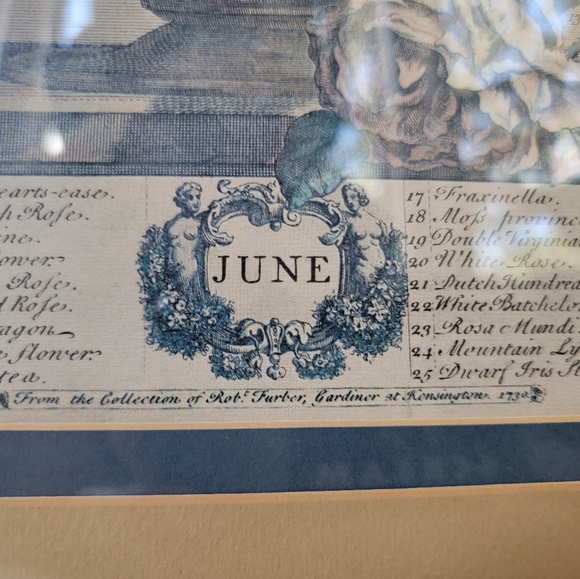 earts-ease.
h Rose.
ine.
ower.
Rose.
d Rose.
ragon
e flower.
tea.
JUNE
17 Fraxinella.
18 Moss province
19 Double Virginian
20 White Rose
21 Dutch Hundred
22 White Batchelo
23 Rosa Mundi
24 Mountain Ly
25 Dwarf Iris St
From the Collection of Robt. Furber, Gardiner at Kensington. 1730.